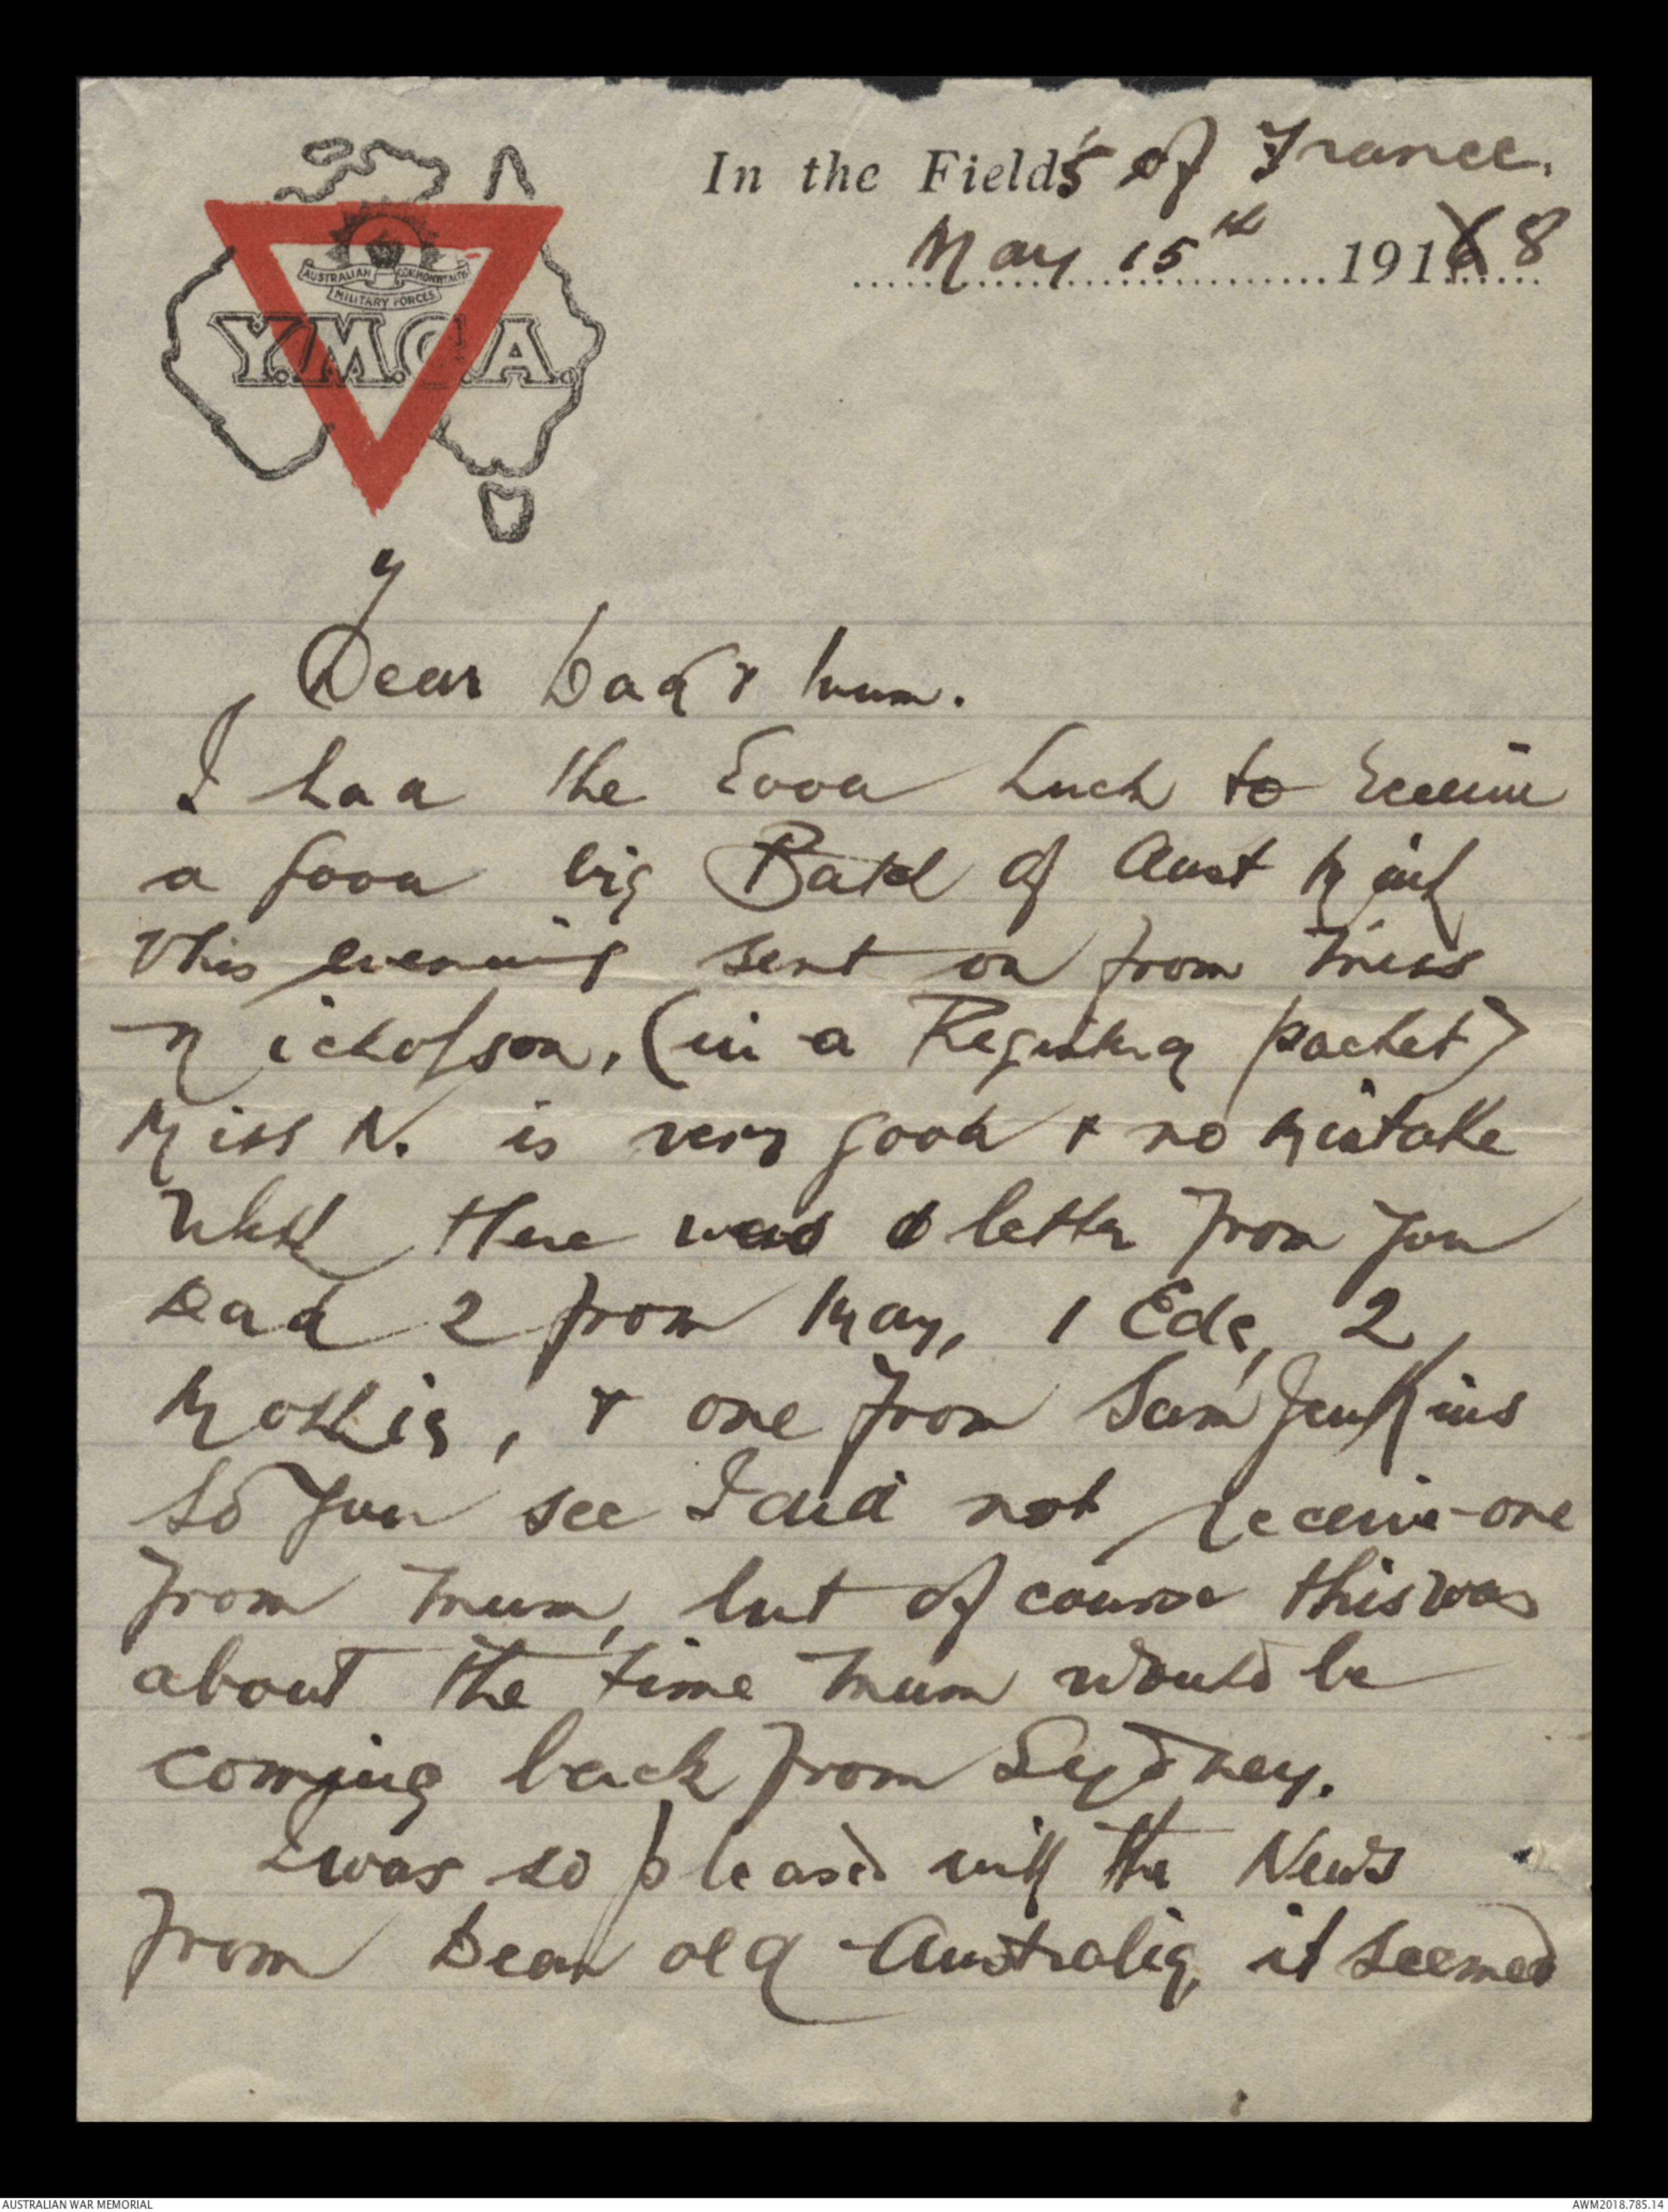 In the Field's of France.
May 15th 1916 8
AUSTRALIAN COMMONWEALTH
MILITARY FORCES
Y.M.C.A.
y
Dear Dad & Mum.
I had the Good Luck to Receive
a good big Batch of Aust Mail
this evening sent on from Miss
Nickolson, (in a Registerd packet)
Miss N. is very good & no mistake
Well there was a letter from you
Dad 2 from May, 1 Ede, 2
Mollie, & one from Sam Jenkins
so you see I did not receive one
from Mum, but of course this was
about the time Mum would be
coming back from Sydney.
I was so pleased with the News
from Dear old Australia, it seemed
AUSTRALIAN WAR MEMORIAL
AWM2018.785.14